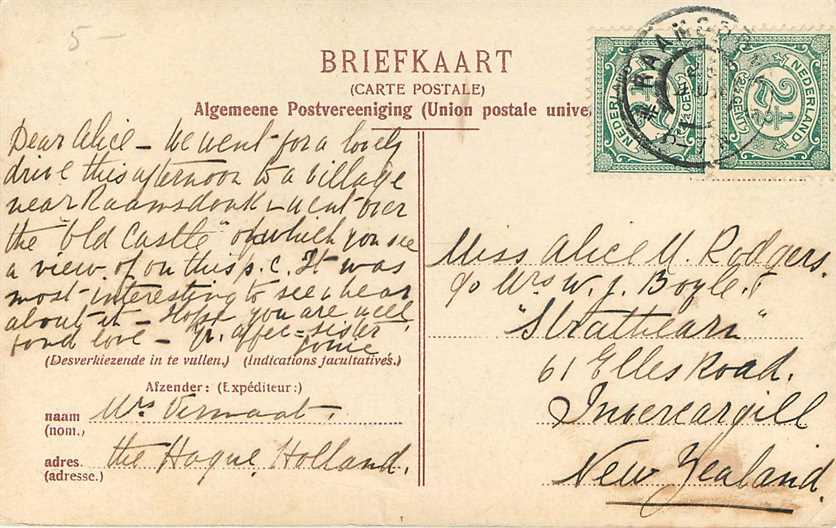 5-
BRIEFKAART
(CARTE POSTALE)
Algemeene Postvereeniging (Union postale unive
NEDERLAND
2½
NEDERLAND
2½
(2½ CENT)
RAAMSD
Dear Alice - We went for a lovely
drive this afternoon to a village
near Raamsdonk & went over
the "Old Castle" of which you see
a view of on this p.c. It was
most interesting to see & hear
about it - Hope you are well
fond love - Yr. affec - sister
(Desverkiezende in te vullen.) (Indications facultatives.)
Afzender: (Expéditeur:)
naam Mrs Vermaat.
(nom.)
adres. The Hague, Holland.
(adresse.)
Miss Alice M. Rodgers.
c/o Mrs W. J. Boyle
"Strathearn"
61 Elles Road.
Invercargill
New Zealand.